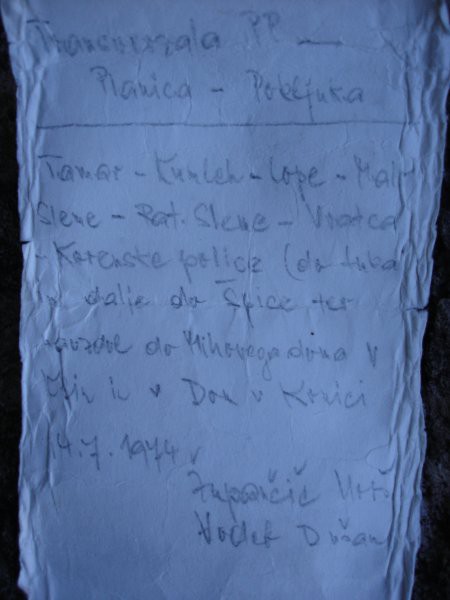 Transverzala PP —
Planica - Pokljuka
Tamar - Kunleh - Lope - Mali
Sleme - Rat. Sleme - Vratca
- Korenske police (do tuka)
in dalje do Špice ter
navzdol do Mihovega doma v
in v Dom v Krnici
14.7.1974
Župančič Uroš
Vodeb Dušan